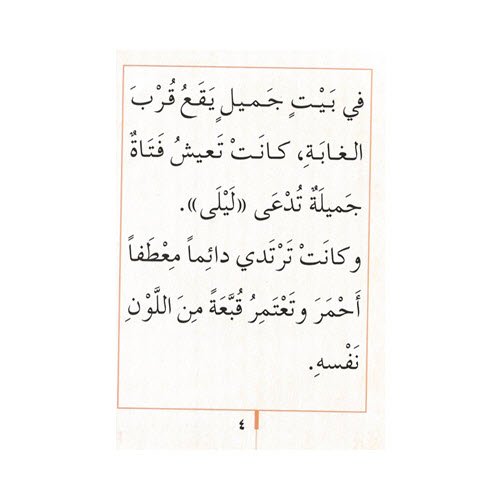 في بَيْتٍ جَميلٍ يَقَعُ قُرْبَ
الغابَةِ، كانَتْ تَعيشُ فَتَاةٌ
جَميلَةٌ تُدْعَى «لَيْلَى».
وكانَتْ تَرْتَدي دائِماً مِعْطَفاً
أَحْمَرَ وتَعْتَمِرُ قُبَّعَةً مِنَ اللَّوْنِ
نَفْسهِ.
٤